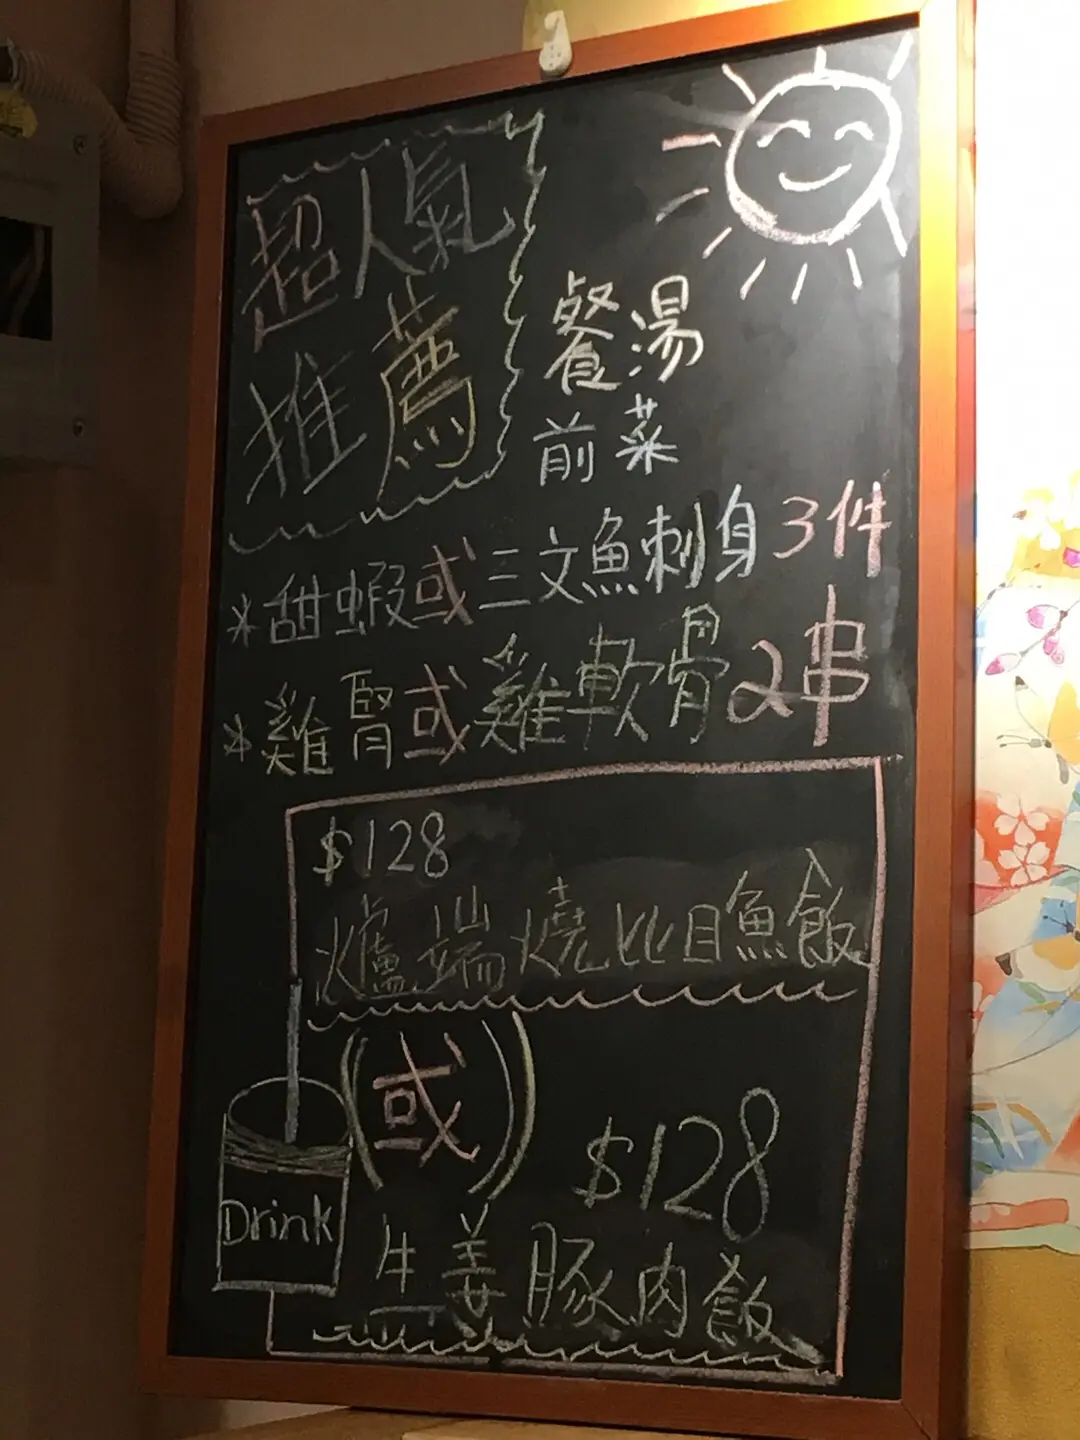 超人氣
推薦
餐湯
前菜
*甜蝦或三文魚刺身3件
*雞腎或雞軟骨2串
$128
爐端燒比目魚飯
(或)
$128
Drink
生姜豚肉飯